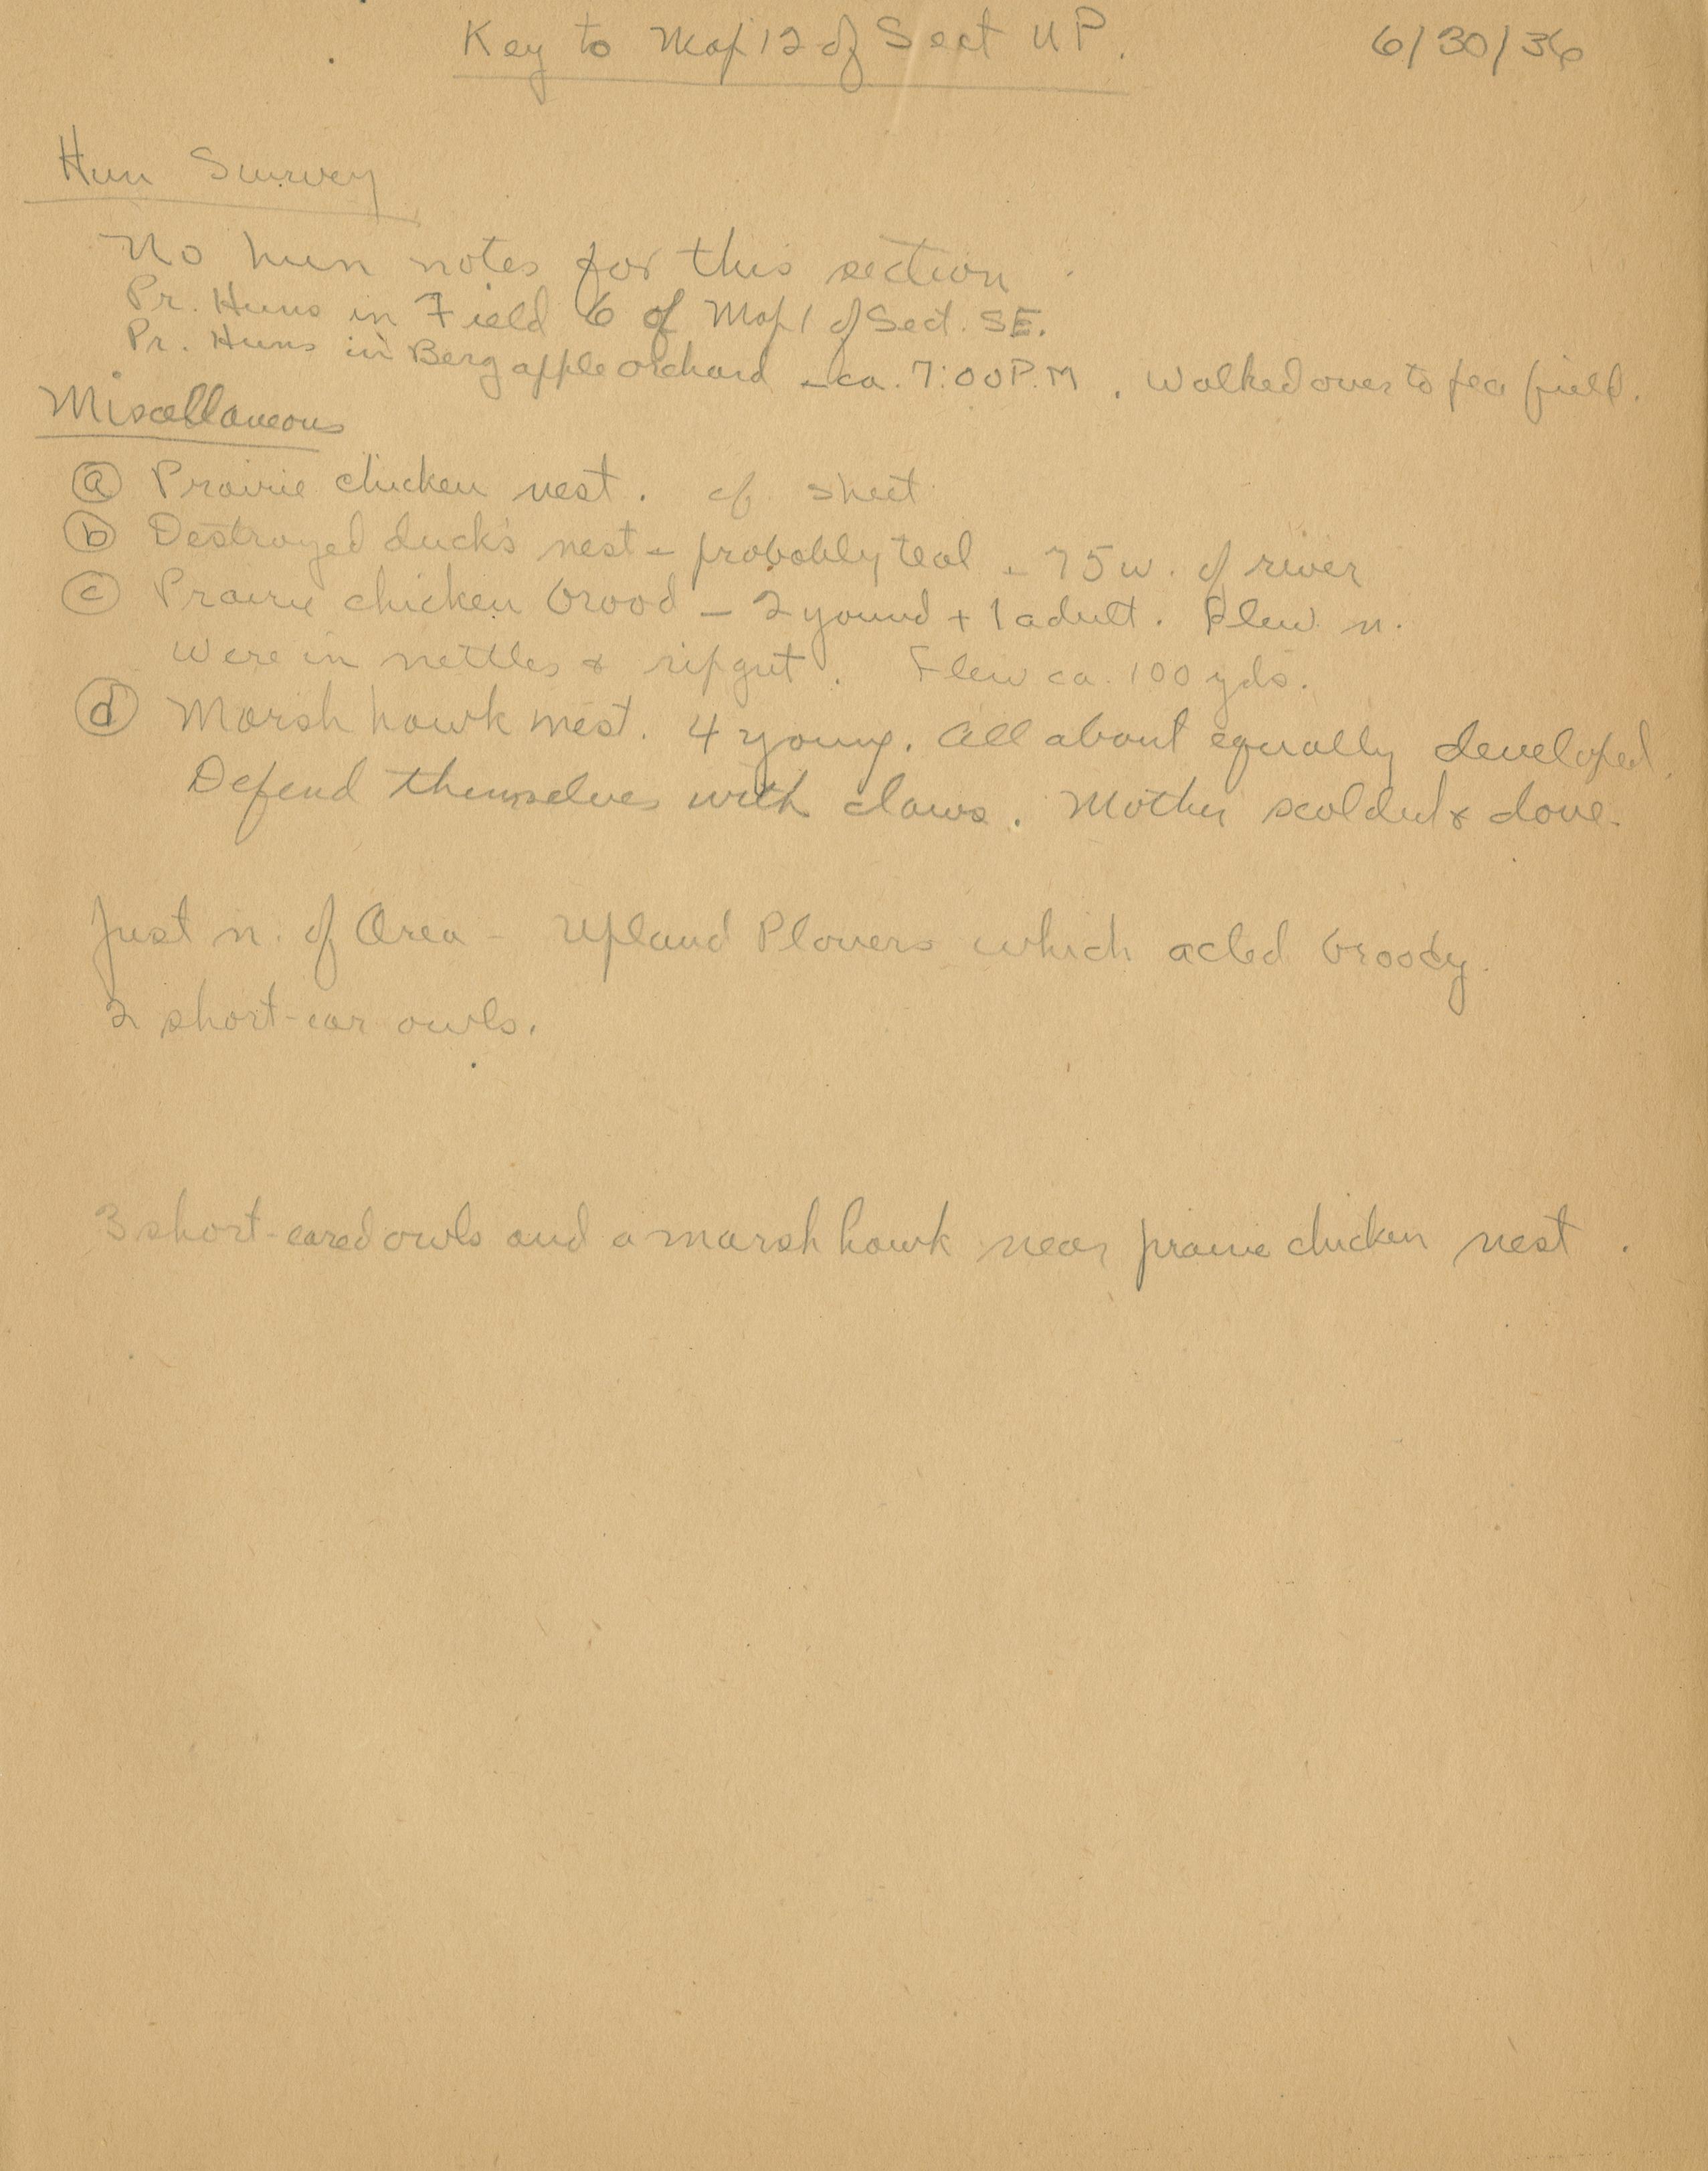 Key to Map 12 of Sect UP.
6/30/36
Hun Survey
No hun notes for this section.
Pr. Huns in Field 6 of Map 1 of Sect. SE.
Pr. Huns in Berg apple orchard - ca. 7:00 P.M. Walked over to pea field.
Miscellaneous
(a) Prairie chicken nest. cf sheet
(b) Destroyed duck's nest - probably teal - 75 w. of river
(c) Prairie chicken brood - 2 yound + 1 adult. Flew n.
Were in nettles & ripgut. Flew ca. 100 yds.
(d) Marsh hawk nest. 4 young. All about equally developed.
Defend themselves with claws. Mother scolded & dove.
Just n. of Area - Upland Plovers which acted broody.
2 short-ear owls.
3 short-eared owls and a marsh hawk near prairie chicken nest.